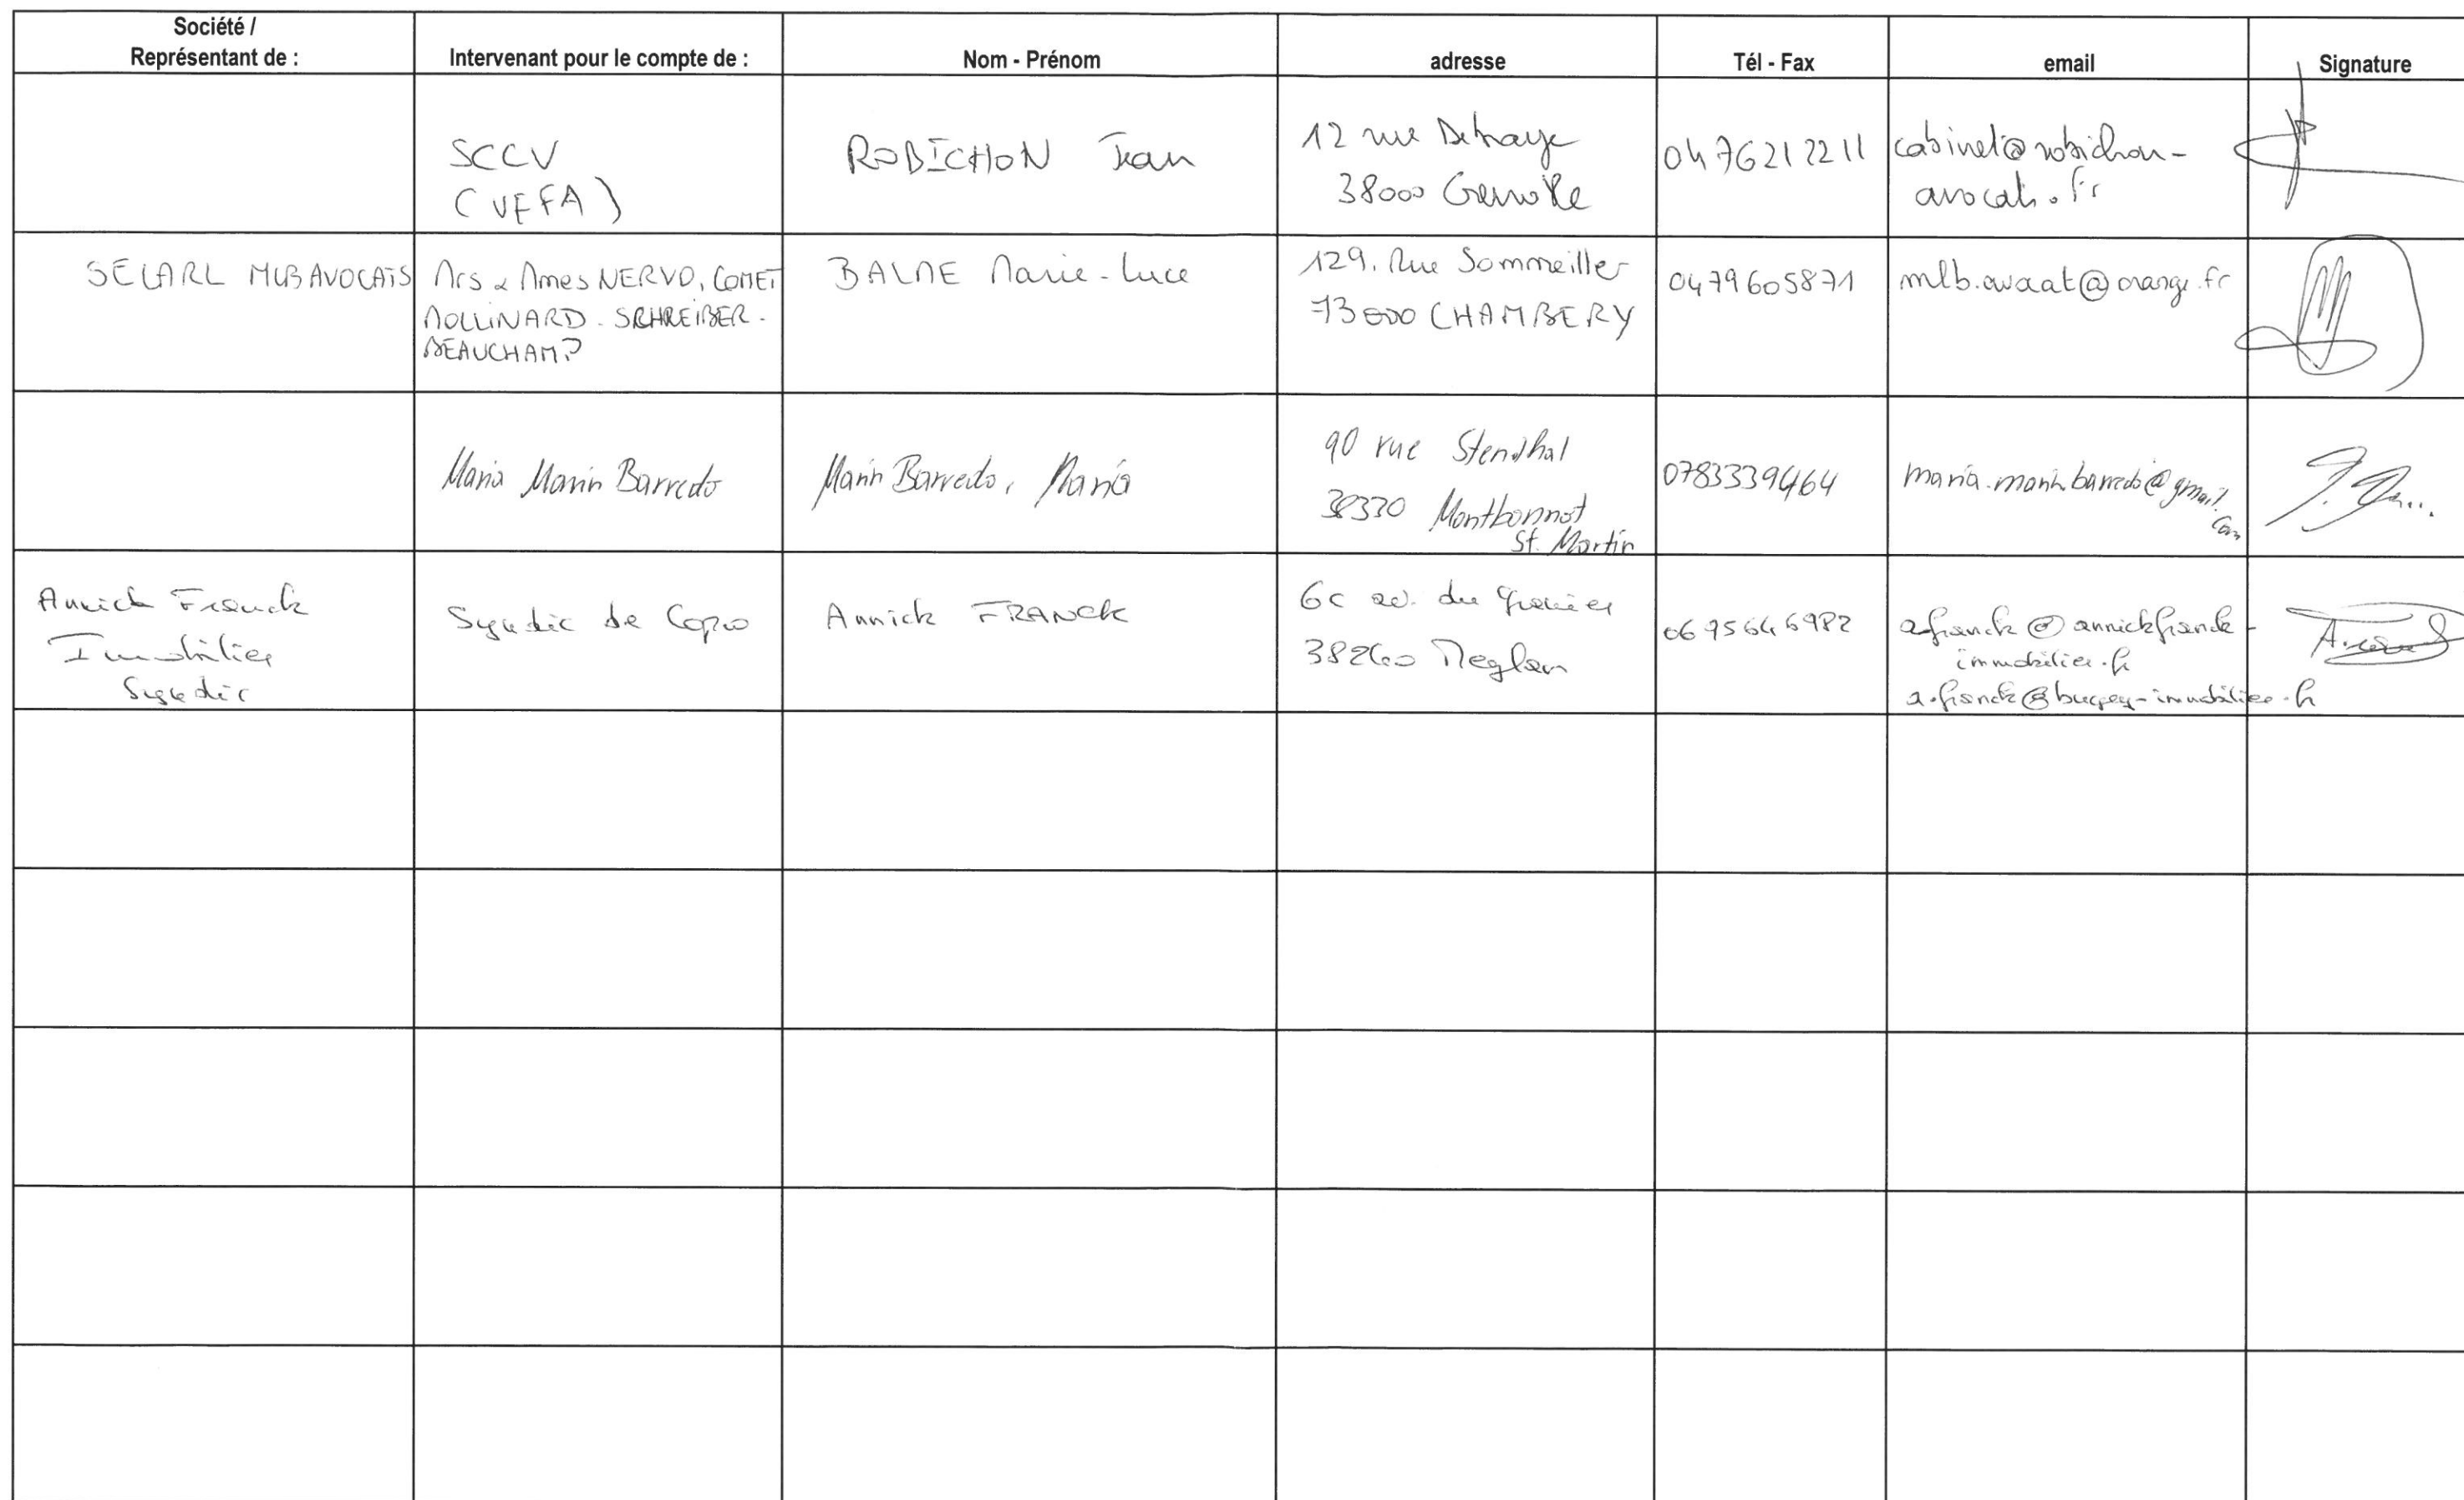 Société /
Représentant de :
Intervenant pour le compte de :
Nom - Prénom
adresse
Tél - Fax
email
Signature
SCCV
(VEFA)
ROBICHON Jean
12 rue
38000 Grenoble
0476212211
cabinet@robichon-
avocats.fr
SELARL MLB AVOCATS
Mrs & Mmes NERVO, COMET
MOLLINARD - SCHREIBER -
BEAUCHAMP
BALME Marie-Luce
129, Rue Sommeiller
73000 CHAMBERY
0479605871
mlb.avocat@orange.fr
Maria Marin Barredo
Marin Barredo, María
90 rue Stendhal
38330 Montbonnot
St. Martin
0783339464
maria.marin.barredo@gmail.
com
Annick Franck
Immobilier
Syndic
Syndic de Copro
Annick FRANCK
6c av. du
38240 Meylan
a.franck@annickfranck-
immobilier.fr
a.franck@bugey-immobilier.fr